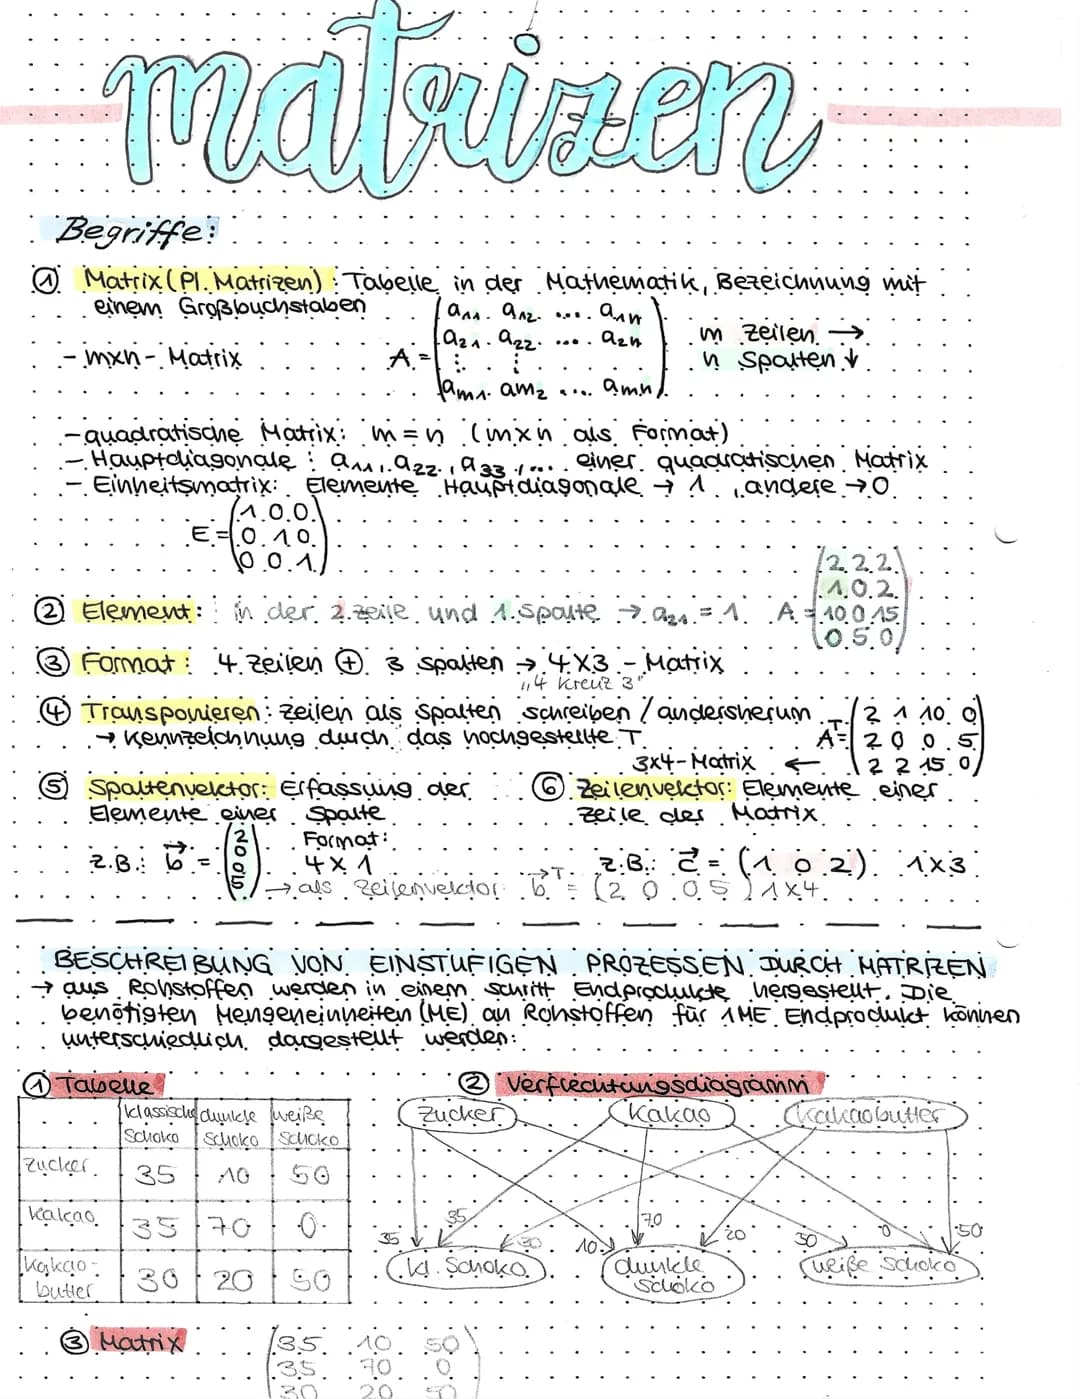 matrizen
Begriffe:
① Matrix (Pl. Matrizen): Tabelle in der Mathematik, Bezeichnung mit
einem Großbuchstaben
- mxn - Matrix
A = (a₁₁ a₁₂ .... a₁n
a₂₁ a₂₂ .... a₂n
⋮ ⋮
am₁ am₂ .... amn)
m Zeilen →
n Spalten ↓
- quadratische Matrix: m = n (mxn als Format)
- Hauptdiagonale: a₁₁, a₂₂, a₃₃, .... einer quadratischen Matrix
- Einheitsmatrix: Elemente Hauptdiagonale → 1, andere → 0
E = (1 0 0
0 1 0
0 0 1)
② Element: in der 2. Zeile und 1. Spalte → a₂₁ = 1
A = (2 2 2
1 0 2
10 0 15
0 5 0)
③ Format: 4 Zeilen ⊕ 3 Spalten → 4x3 - Matrix
„4 Kreuz 3"
④ Transponieren: Zeilen als Spalten schreiben / andersherum
→ Kennzeichnung durch das hochgestellte T
Aᵀ = (2 1 10 0
2 0 0 5
2 2 15 0)
3x4 - Matrix ←
⑤ Spaltenvektor: Erfassung der
Elemente einer Spalte
z.B.: b⃗ = (2
0
0
5)
Format:
4 x 1
→ als Zeilenvektor: b⃗ᵀ = (2 0 0 5) 1x4
⑥ Zeilenvektor: Elemente einer
Zeile der Matrix
z.B.: c⃗ = (1 0 2) 1x3
BESCHREIBUNG VON EINSTUFIGEN PROZESSEN DURCH MATRIZEN
→ aus Rohstoffen werden in einem Schritt Endprodukte hergestellt. Die
benötigten Mengeneinheiten (ME) an Rohstoffen für 1ME Endprodukt können
unterschiedlich dargestellt werden:
① Tabelle
klassische Schoko dunkle Schoko weiße Schoko
Zucker 35 10 50
Kakao 35 70 0
Kakao-butter 30 20 50
② Verflechtungsdiagramm
Zucker Kakao Kakaobutter
35 35 30 10 70 20 50 0 50
kl. Schoko dunkle Schoko weiße Schoko
③ Matrix
(35 10 50
35 70 0
30 20 50